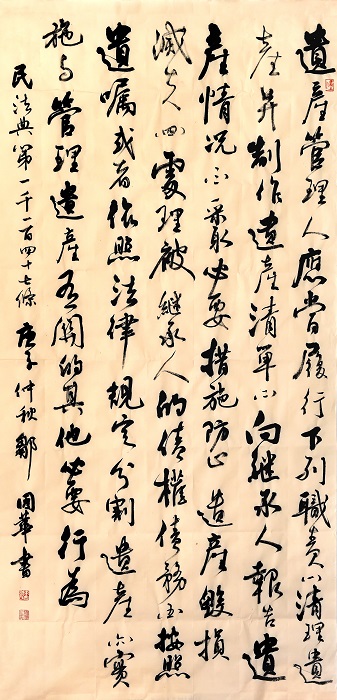 遺產管理人應當履行下列職責一清理遺
產并制作遺產清單二向继承人報告遺
產情况三采取必要措施防止遺產毁損
滅失四處理被继承人的债權债務五按照
遺嘱或者依照法律規定分割遺產六實
施与管理遺產有關的其他必要行為
民法典第一千一百四十七條 庚子仲秋鄒国華書